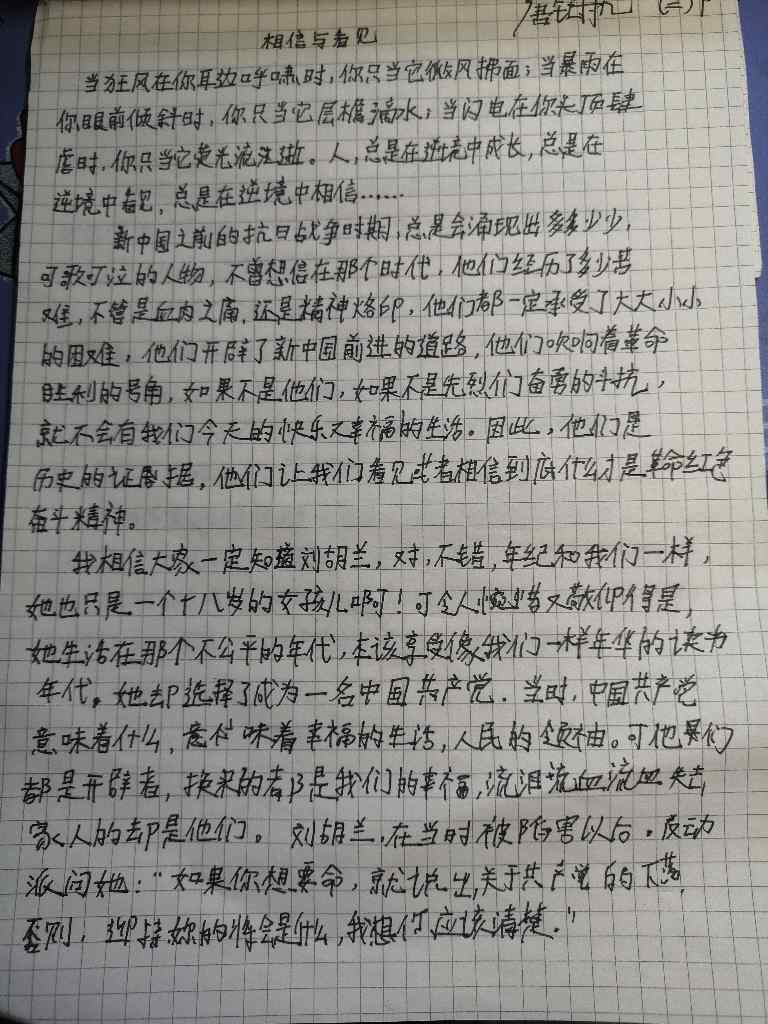 唐 (二)
相信与看见
当狂风在你耳边呼啸时，你只当它微风拂面；当暴雨在
你眼前倾斜时，你只当它层檐滴水；当闪电在你头顶肆
虐时，你只当它荧光流逝。人，总是在逆境中成长，总是在
逆境中看见，总是在逆境中相信……
新中国之前的抗日战争时期，总是会涌现出多多少少，
可歌可泣的人物，不曾想信在那个时代，他们经历了多少苦
难，不管是血肉之痛，还是精神烙印，他们都一定承受了大大小小
的困难，他们开辟了新中国前进的道路，他们吹响着革命
胜利的号角，如果不是他们，如果不是先烈们奋勇的斗抗，
就不会有我们今天的快乐又幸福的生活。因此，他们是
历史的证据，他们让我们看见或者相信到底什么才是革命红色
奋斗精神。
我相信大家一定知道刘胡兰，对，不错，年纪和我们一样，
她也只是一个十八岁的女孩儿啊！可令人惋惜又敬仰得是，
她生活在那个不公平的年代，本该享受像我们一样年华的读书
年代。她却选择了成为一名中国共产党．当时，中国共产党
意味着什么，意味着幸福的生活，人民的领袖。可他们
都是开辟者，换来的都是我们的幸福，流泪流血流血失去
家人的却是他们。刘胡兰，在当时被陷害以后．反动
派问她：“如果你想要命，就说出关于共产党的下落，
否则，迎接你的将会是什么，我想你应该清楚．”